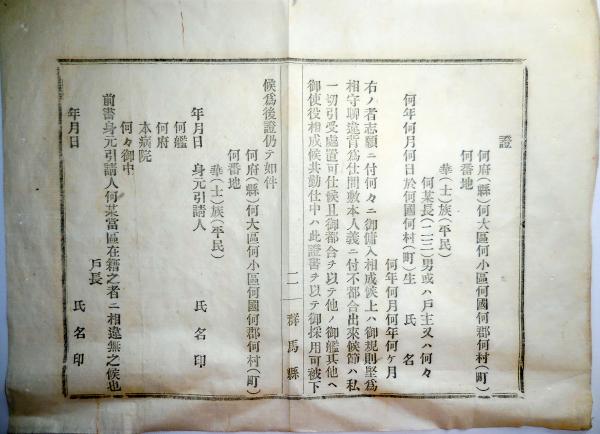 證
何府(縣)何大區何小區何國何郡何村(町)
何番地
華(士)族(平民)
何某長(二三)男或ハ戶主又ハ何々
氏名
何年何月何日於何國何村(町)生
何年何月何年何ヶ月
右ノ者志願ニ付何々ニ御傭入相成候上ハ御規則堅爲
相守聊違背爲仕間敷本人義ニ付不都合出來候節ハ私
一切引受處置可仕候且御都合ヲ以テ他ノ御艦其他ヘ
御使役相成候共勤仕中ハ此證書ヲ以テ御採用可被下
二
群馬縣
候爲後證仍テ如件
何府(縣)何大區何小區何國何郡何村(町)
何番地
華(士)族(平民)
年月日 身元引請人 氏名印
何艦
何府
本病院
何々御中
前書身元引請人何某當區在籍之者ニ相違無之候也
戶長
年月日 氏名印